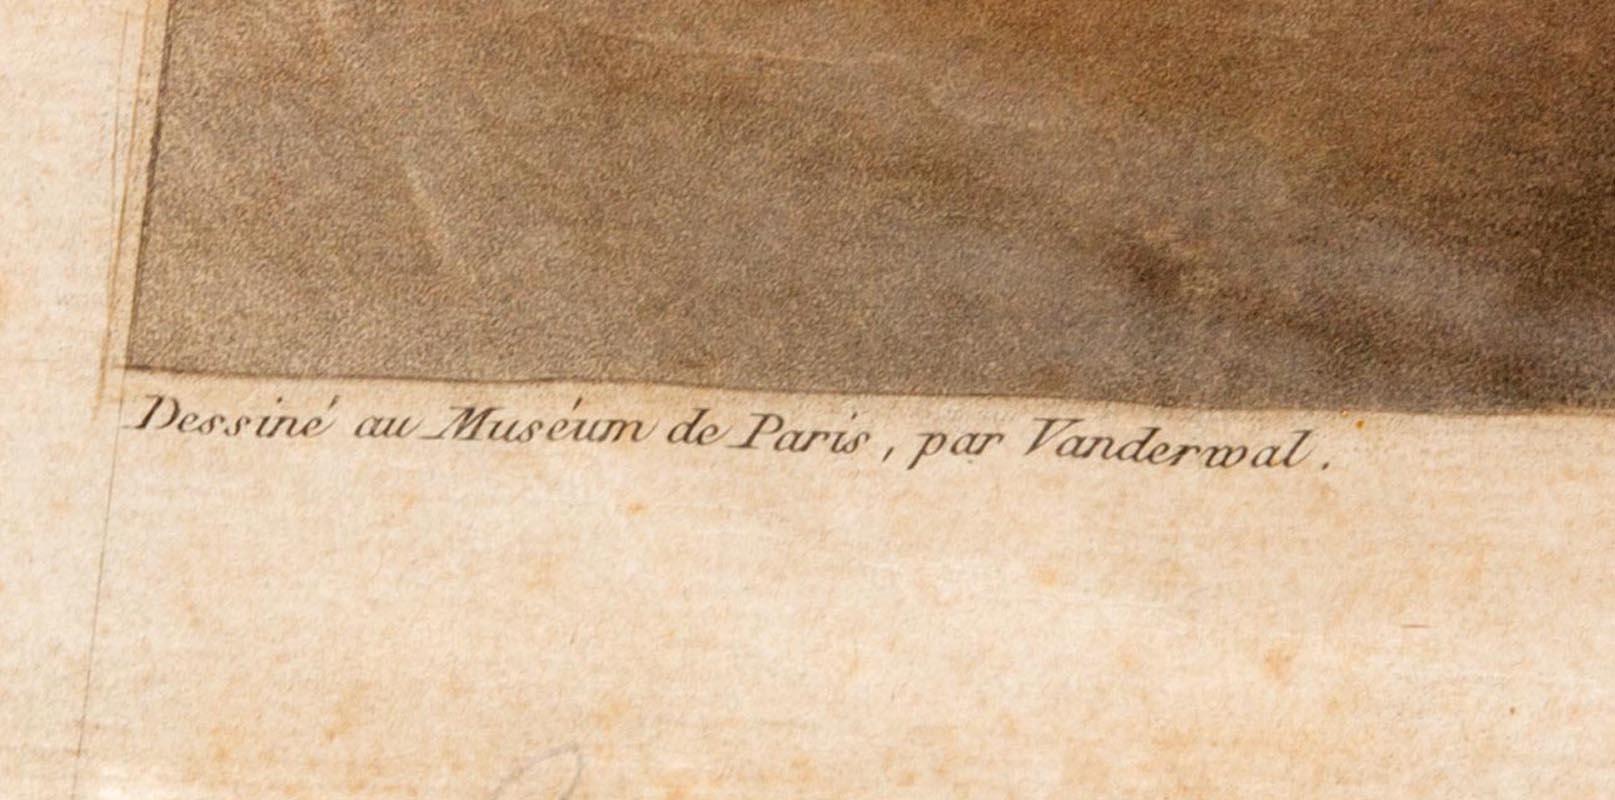 Dessiné au Muséum de Paris, par Vanderwal.